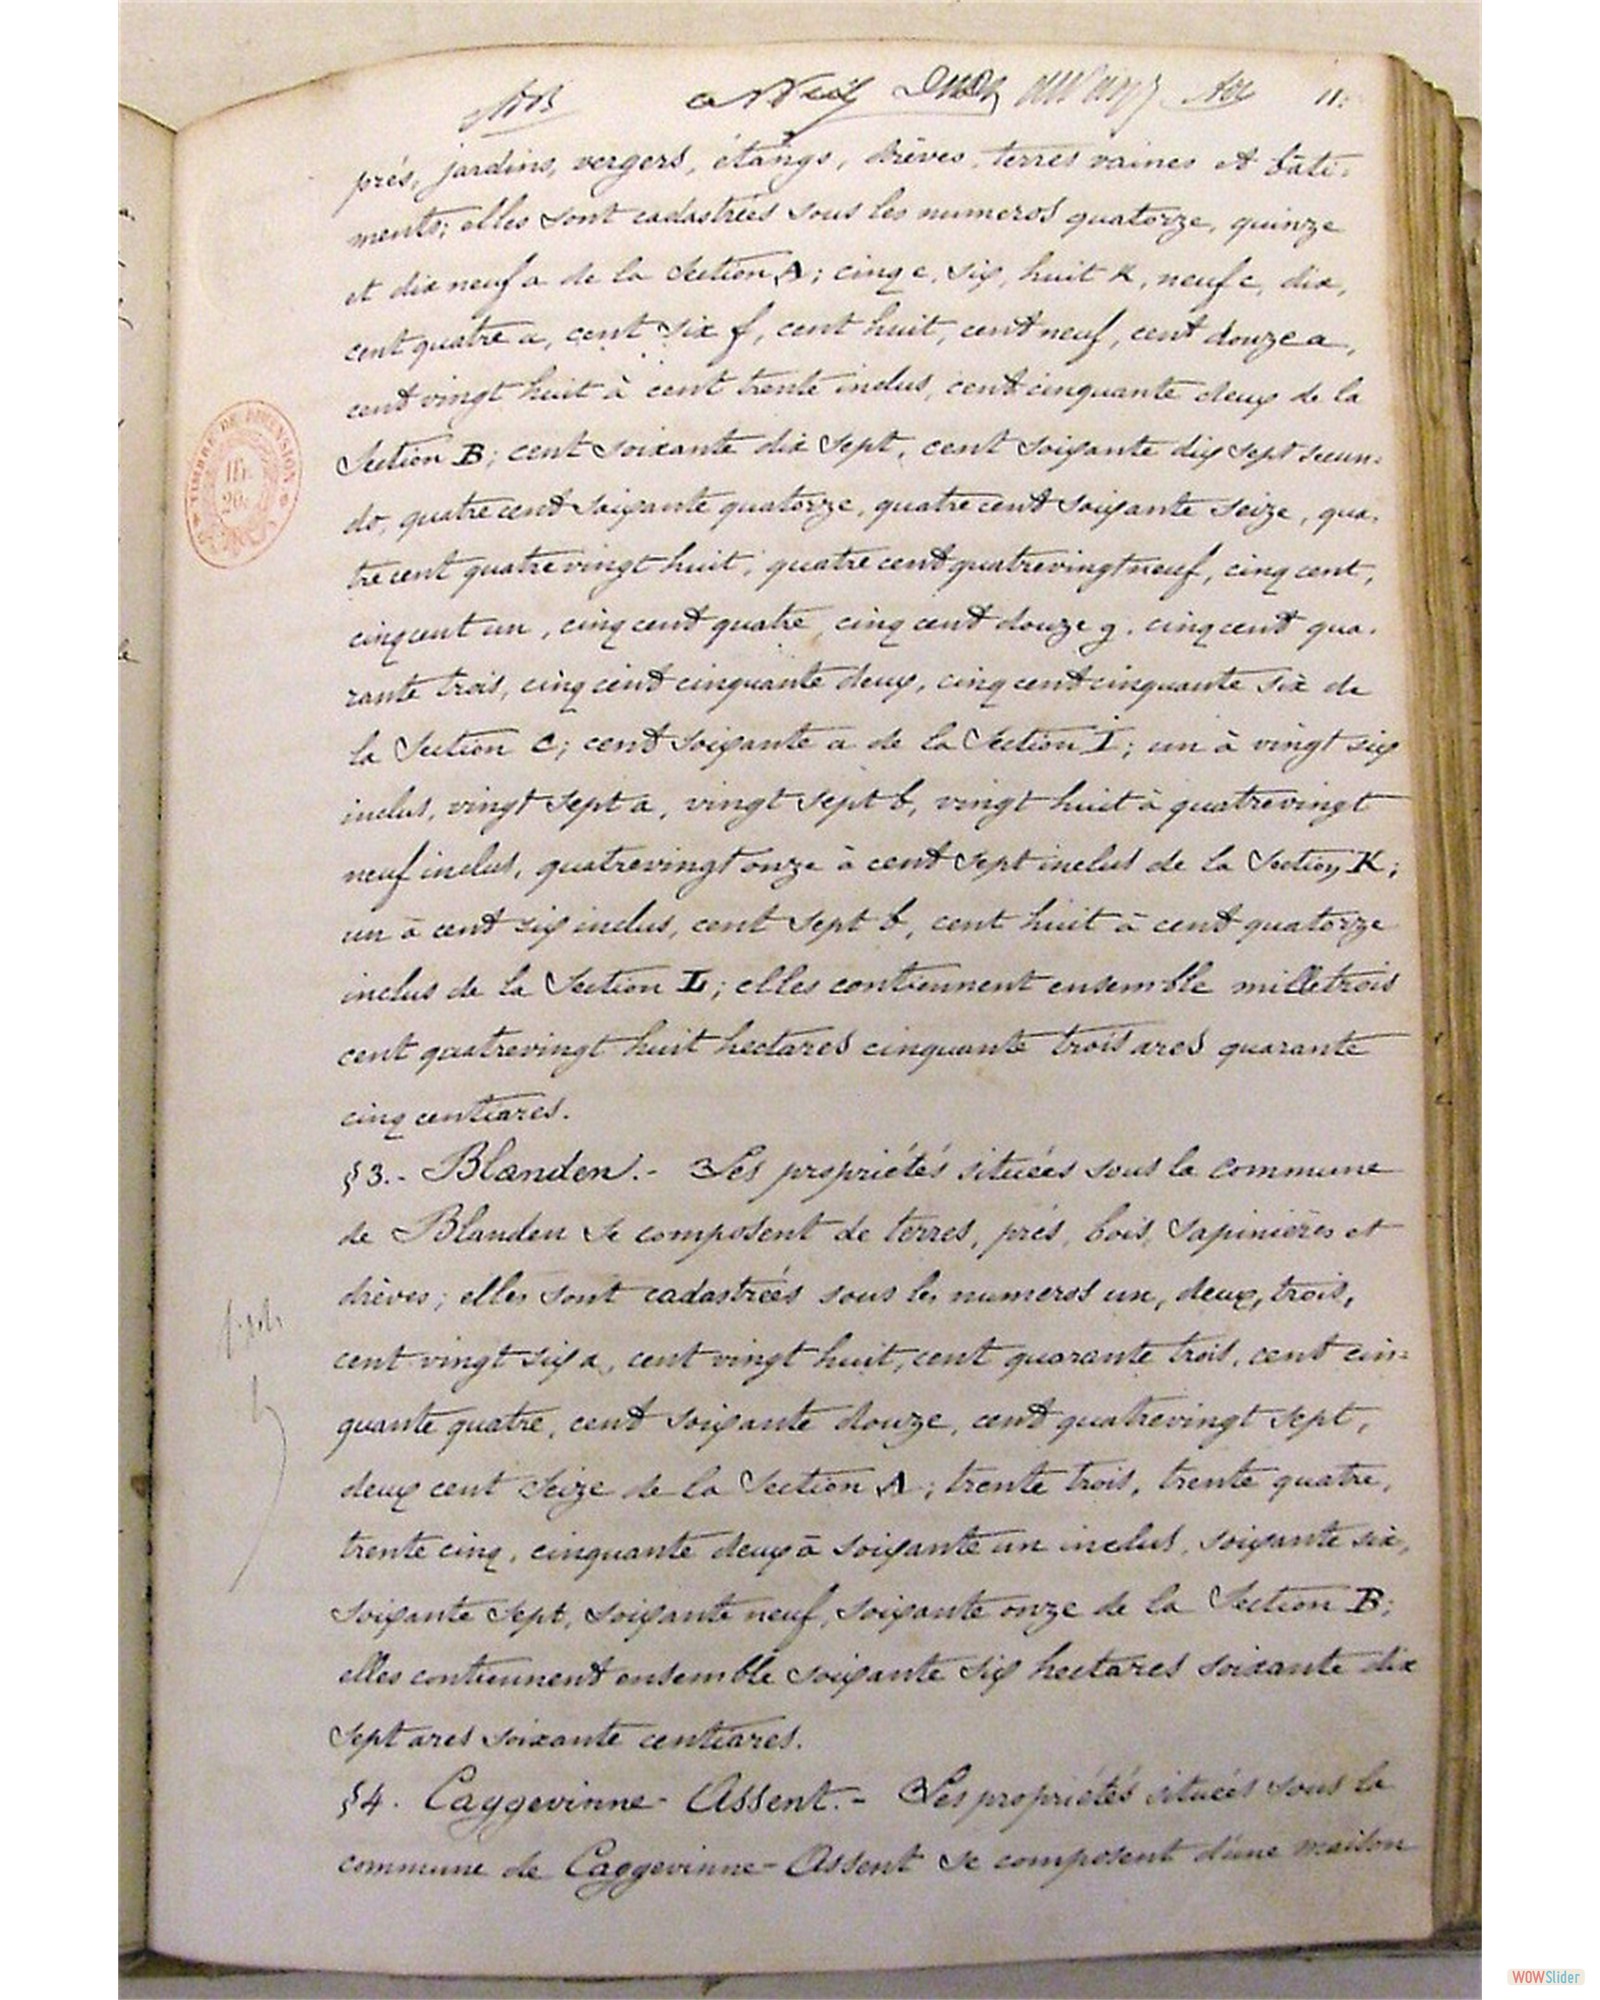 11.
prés, jardins, vergers, étangs, drèves, terres vaines et bâti-
ments; elles sont cadastrées sous les numeros quatorze, quinze
et dix neuf a de la Section A; cinq c, six, huit K, neuf c, dix,
cent quatre a, cent six f, cent huit, cent neuf, cent douze a,
cent vingt huit à cent trente inclus, cent cinquante deux de la
Section B; cent soixante dix sept, cent soixante dix sept secun-
do, quatre cent soixante quatorze, quatre cent soixante seize, qua-
tre cent quatrevingt huit, quatre cent quatrevingt neuf, cinq cent,
cinq cent un, cinq cent quatre, cinq cent douze g, cinq cent qua-
rante trois, cinq cent cinquante deux, cinq cent cinquante six de
la Section C; cent soixante a de la Section I; un à vingt six
inclus, vingt sept a, vingt sept b, vingt huit à quatrevingt
neuf inclus, quatrevingt onze à cent sept inclus de la Section K;
un à cent six inclus, cent sept b, cent huit à cent quatorze
inclus de la Section L; elles contiennent ensemble mille trois
cent quatrevingt huit hectares cinquante trois ares quarante
cinq centiares.
§3.- Blanden.- Les propriétés situées sous la commune
de Blanden se composent de terres, prés, bois, sapinières et
drèves; elles sont cadastrées sous les numeros un, deux, trois,
cent vingt six a, cent vingt huit, cent quarante trois, cent cin-
quante quatre, cent soixante douze, cent quatrevingt sept,
deux cent seize de la Section A; trente trois, trente quatre,
trente cinq, cinquante deux à soixante un inclus, soixante six,
soixante sept, soixante neuf, soixante onze de la Section B;
elles contiennent ensemble soixante six hectares soixante dix
sept ares soixante centiares.
§4. Caggevinne-Assent.- Les propriétés situées sous la
commune de Caggevinne-Assent se composent d'une maison
TIMBRE DE DIMENSION
WOWSlider